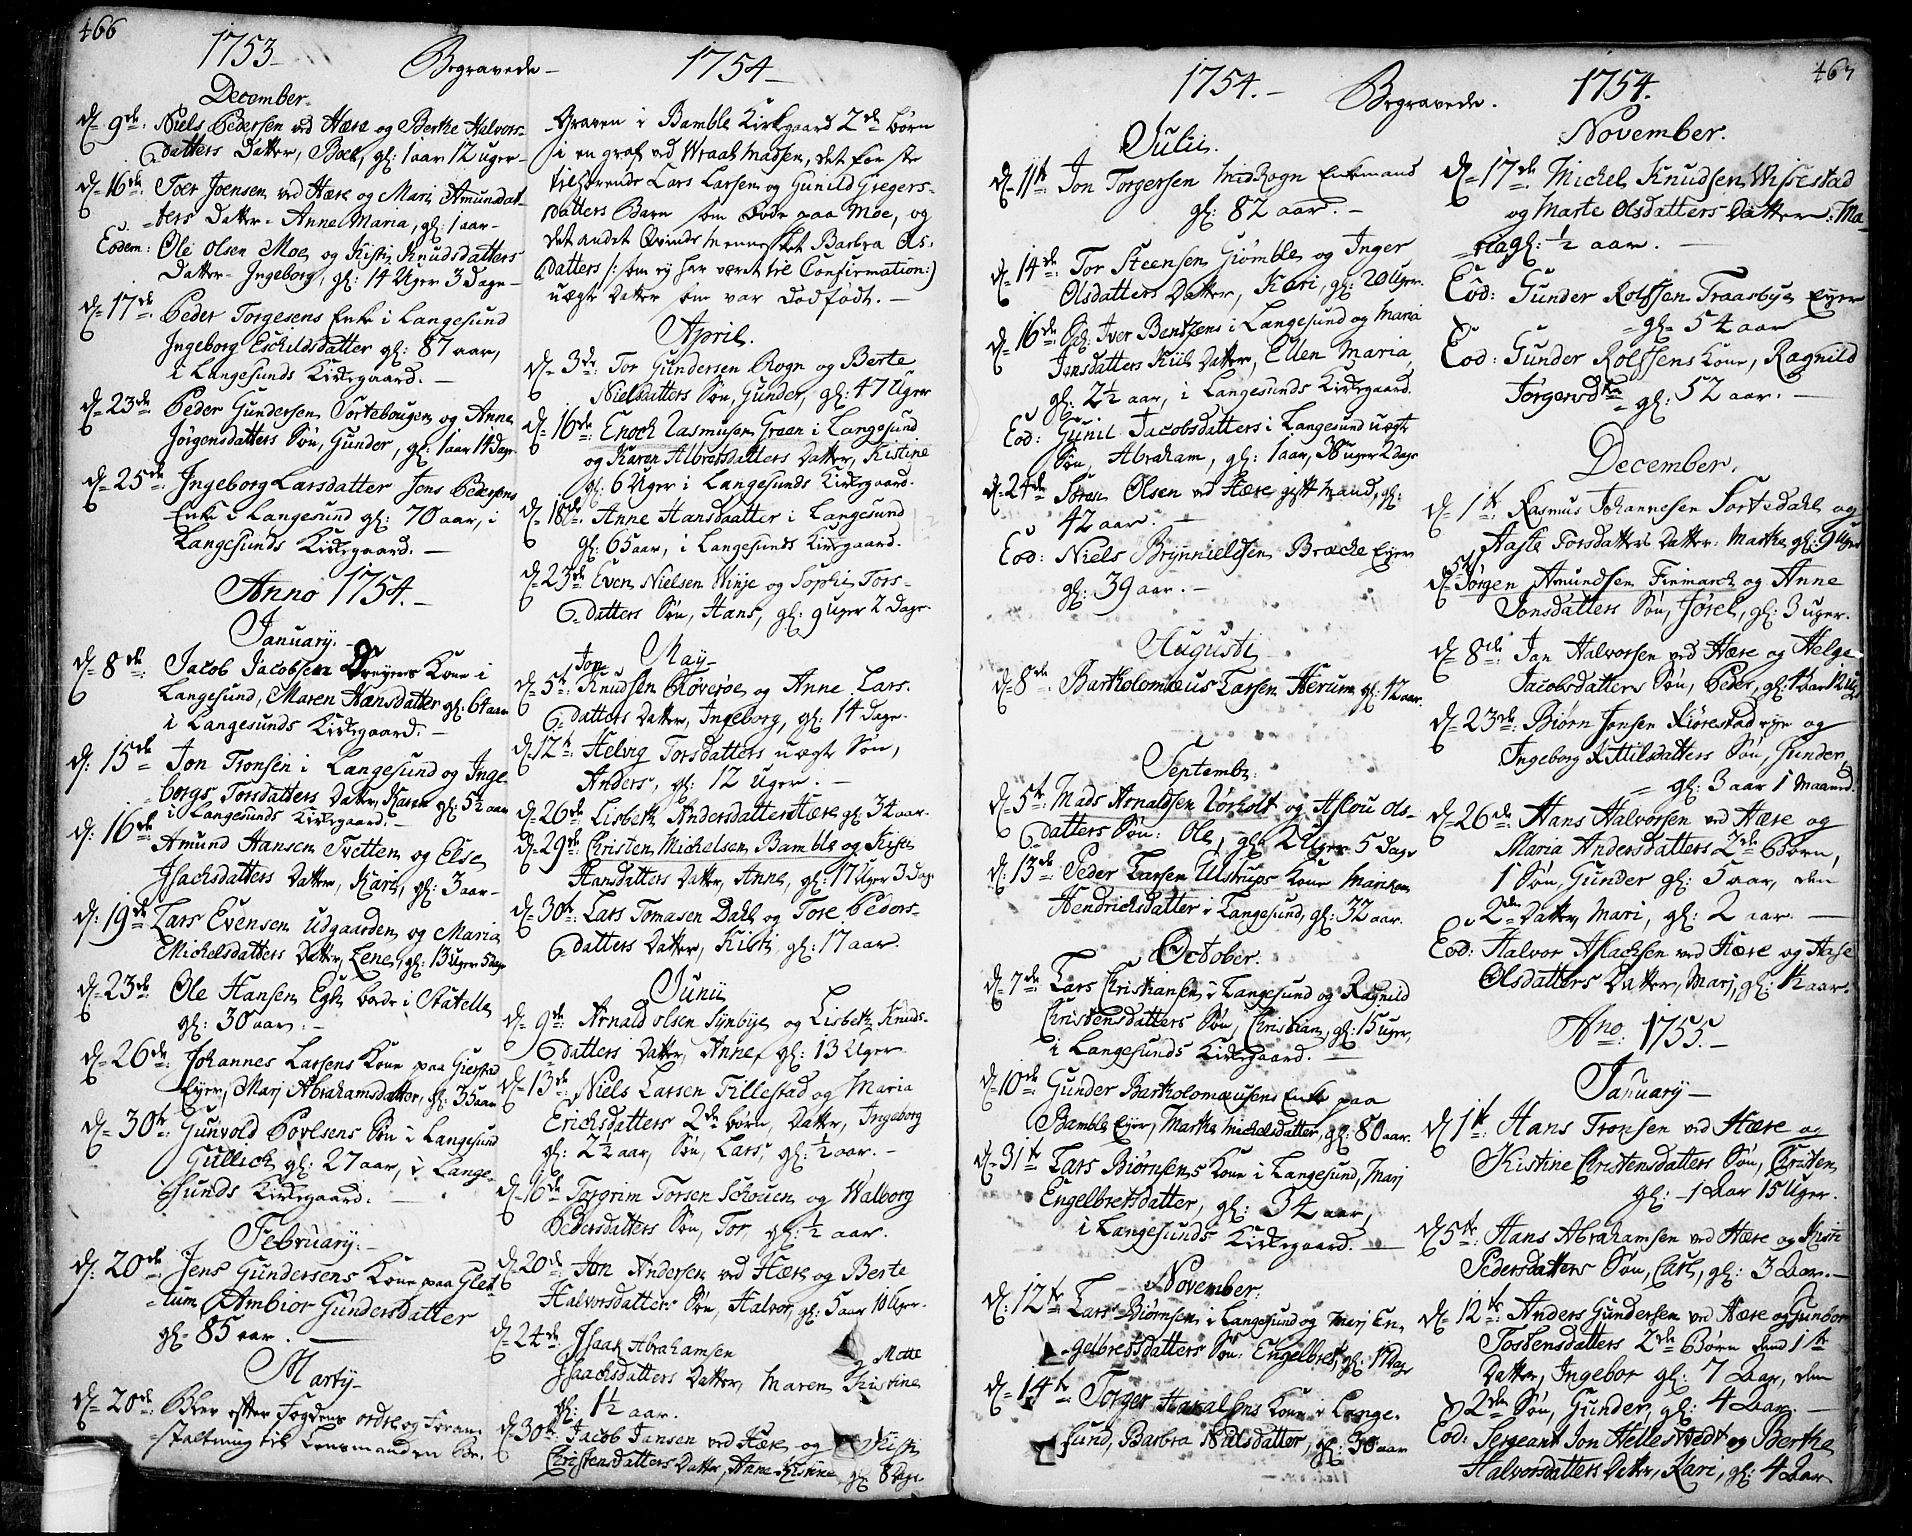 466
1753
Begravede
1754
December
d. 9de: Niels Pedersen ved Hære og Berthe Halvors-
datters Datter, Boel, gl: 1 aar 12 uger
d. 16de Toer Joensen ved Hære og Mari Amundsdat-
ters Datter Anne Maria, gl: 1 aar
Eodem: Ole Olsen Moe og Kisti Knudsdatters
Datter Ingeborg, gl: 14 Uger 3 Dage
d. 17de Peder Torgesens Enke i Langesund
Ingeborg Eschildsdatter gl: 87 aar,
i Langesunds Kirkegaard.
d. 23de Peder Gundersen Sortebougen og Anne
Jørgensdatters Søn, Gunder, gl: 1 aar 14 dage
d. 25de: Ingeborg Larsdatter Jens Pedersens
Enke i Langesund gl: 70 aar, i
Langesunds Kirkegaard.
Anno 1754.
January.
d. 8de: Jacob Jacobsen Dreyers Kone i
Langesund, Maren Hansdatter gl: 64 aar
i Langesunds Kirkegaard.
d: 15de Jon Tronsen i Langesund og Inge-
borgs Torsdatters Datter, Karen gl: 5½ aar
i Langesunds Kirkegaard.
d: 16de Amund Hansen Tvetten og Else
Isachsdatters Datter, Kari, gl: 3 aar
d: 19de Lars Evensen Udgaarden og Maria
Michelsdatters Datter, Lene, gl: 13 Uger 5 dage
d. 23de Ole Hansen Egh, boede i Statelle
gl: 30 aar.
d. 26de: Johannes Larsens Kone paa Gierstad
Eyer, Mari Abrahamsdatter, gl: 35 aar
d. 30te: Gunvold Povlsens Søn i Langesund
Gullich gl: 27 aar, i Lange-
sunds Kirkegaard.
February:
d: 20de Jens Gundersens Kone paa Glet-
tum Ambior Gundersdatter
gl: 85 aar.
Marty
d. 20de: Blev efter Fogdens ordre og Foran-
staltning til Lensmanden
Graven i Bamble Kirkgaard 2de børn
i en graf ved Wraal Madsen, det første
tilhørende Lars Larsen og Gunild Gregers-
datters Barn som boede paa Moe, og
det andet Qvindemennesket Barbra Ols-
datters /: som ey har været til Confirmation :/
uægte Datter som var Dødfødt.
April.
d. 3de: Tor Gundersen Rogn og Berte
Nielsdatters Søn, Gunder, gl: 47 Uger
d. 16de: Enoch Rasmusen Green i Langesund
og Karen Albretsdatters Datter, Kistine
gl: 6 Uger i Langesunds Kirkegaard.
d. 18de: Anne Hansdaatter i Langesund
gl: 65 aar, i Langesunds Kirkegaard.
d. 23de Even Nielsen Vinje og Sophi Tors-
datters Søn, Hans, gl: 9 uger 2 Dage.
May
d. 5te: Jon Knudsen Røverøe og Anne Lars-
datters Datter, Ingeborg, gl: 14 dage.
d. 12te: Helvig Torsdatters uægte Søn,
Anders, gl: 12 Uger.
d. 26de Lisbeth Andersdatter Hære gl: 34 aar.
d. 29de: Christen Michelsen Bamble og Kisti
Hansdatters Datter, Anne, gl: 17 Uger 3 Dage
d. 30te: Lars Tomasen Dahl og Tore Peders-
datters Datter, Kisti gl: 17 aar.
Junii
d. 9de: Arnald Olsen Synbye og Lisbeth Knuds-
datters Datter, Anne, gl: 13 Uger.
d. 13de Niels Larsen Tillestad og Maria
Erichsdatters 2de børn, Datter, Ingeborg
gl: 2½ aar, Søn, Lars, gl: ½ aar.
d. 16de Torgrim Torsen Schouen og Walborg
Pedersdatters Søn, Tor, gl: ½ aar.
d. 20de: Jon Andersen ved Hære og Berte
Halvorsdatters Søn, Halvor, gl: 5 aar 10 Uger.
d. 24de: Isaak Abrahamsen og Mette
Isaachsdatters Datter, Maren Kistine
gl: 1½ aar.
d. 30te: Jacob Jansen ved Hære og Kisti
Christensdatters Datter, Anne Kistine, gl: 8 Dage
467
1754.
Begravede.
1754.
Julii.
d. 11te Jon Torgersen Rogn Enkemand
gl: 82 aar.
d. 14de: Tor Steensen Giømble og Inger
Olsdatters Datter, Kari, gl: 20 Uger.
d. 16de Iver Bentzens i Langesund og Maria
Jensdatters Kiil Datter, Ellen Maria,
gl: 2½ aar, i Langesunds Kirkegaard.
Eod: Gunil Jacobsdatters i Langesund uægte
Søn, Abraham, gl: 1 aar, 38 uger 2 dage
d. 24de Søren Olsen ved Hære gift Mand, gl:
42 aar.
Eod: Niels Brynnieldsen Bræche Eyer
gl: 39 aar.
Augusti
d. 8de Bartholomæus Larsen Herum gl: 12 aar.
Septembr:
d. 5te: Mads Arnaldsen Rørholt og Aslou Ols-
datters Søn: Ole, gl: 2 Uger 5 Dage
d: 13de Peder Larsen Ulstrups Kone Marichen
Hendrichsdatter i Langesund, gl: 32 aar.
October:
d: 7de Lars Christiansen i Langesund og Ragnild
Christensdatters Søn, Christian, gl: 15 uger,
i Langesunds Kirkegaard.
d. 10de Gunder Bartholomæusens Enke paa
Bamble Eyer, Marthe Michelsdatter, gl: 80 aar.
d. 31te Lars Biørnsens Kone i Langesund, Mari
Engelbretsdatter, gl: 34 aar,
i Langesunds Kirkegaard.
November:
d: 12te Lars Biørnsen i Langesund og Mari En-
gelbretsdatters Søn: Engelbret, gl: 17 Dage
d: 14te Torger Haralsens Kone i Lange-
sund, Barbra Nielsdatter, gl: 30 aar
November.
d. 17de: Michel Knudsen Wissestad
og Marte Olsdatters Datter, Ma-
ria gl: ½ aar.
Eod: Gunder Rolfsen Traasbye Eyer
gl: 54 aar
Eod: Gunder Rolfsens Kone, Ragnild
Torgersdtr gl: 52 aar.
December.
d. 1te: Rasmus Johannesen Sortedahl og
Aaste Torsdatters Datter: Marthe gl: 9 uger
d. 5te Jørgen Amundsen Finmarck og Anne
Jonsdatters Søn, Jørel, gl: 3 uger.
d. 8de: Jan Halvorsen ved Hære og Helge
Jacobsdatters Søn, Peder, gl: 1 aar 12 Ug
d. 23de: Biørn Jensen Kiørestad eje og
Ingeborg Kittilsdatters Søn, Gunder,
gl: 3 aar 1 Maaned.
d. 26de: Hans Halvorsen ved Hære og
Maria Andersdatters 2de Børn,
1 Søn, Gunder gl: 5 aar, den
2de Datter, Mari, gl: 2 aar.
Eod: Halvor Aslachsen ved Hære og Aase
Olsdatters Datter, Mari, gl: ½ aar.
Ano: 1755.
January
d. 1te: Hans Tronsen ved Hære og
Kistine Christensdatters Søn, Christen
gl: 1 Aar 15 Uger.
d. 5te: Hans Abrahamsen ved Hære og Kisti
Pedersdatters Søn, Carl, gl: 3 Aar.
d. 12te: Anders Gundersen ved Hære og Gunbor
Tostensdatters 2de Børn den 1te
Datter, Ingebor gl: 7 Aar, den
2den Søn, Gunder, gl: 4 Aar.
Eod: Sergeant Jon Hellestvedt og Berthe
Halvorsdatters Datter, Kari, gl: 4 Aar